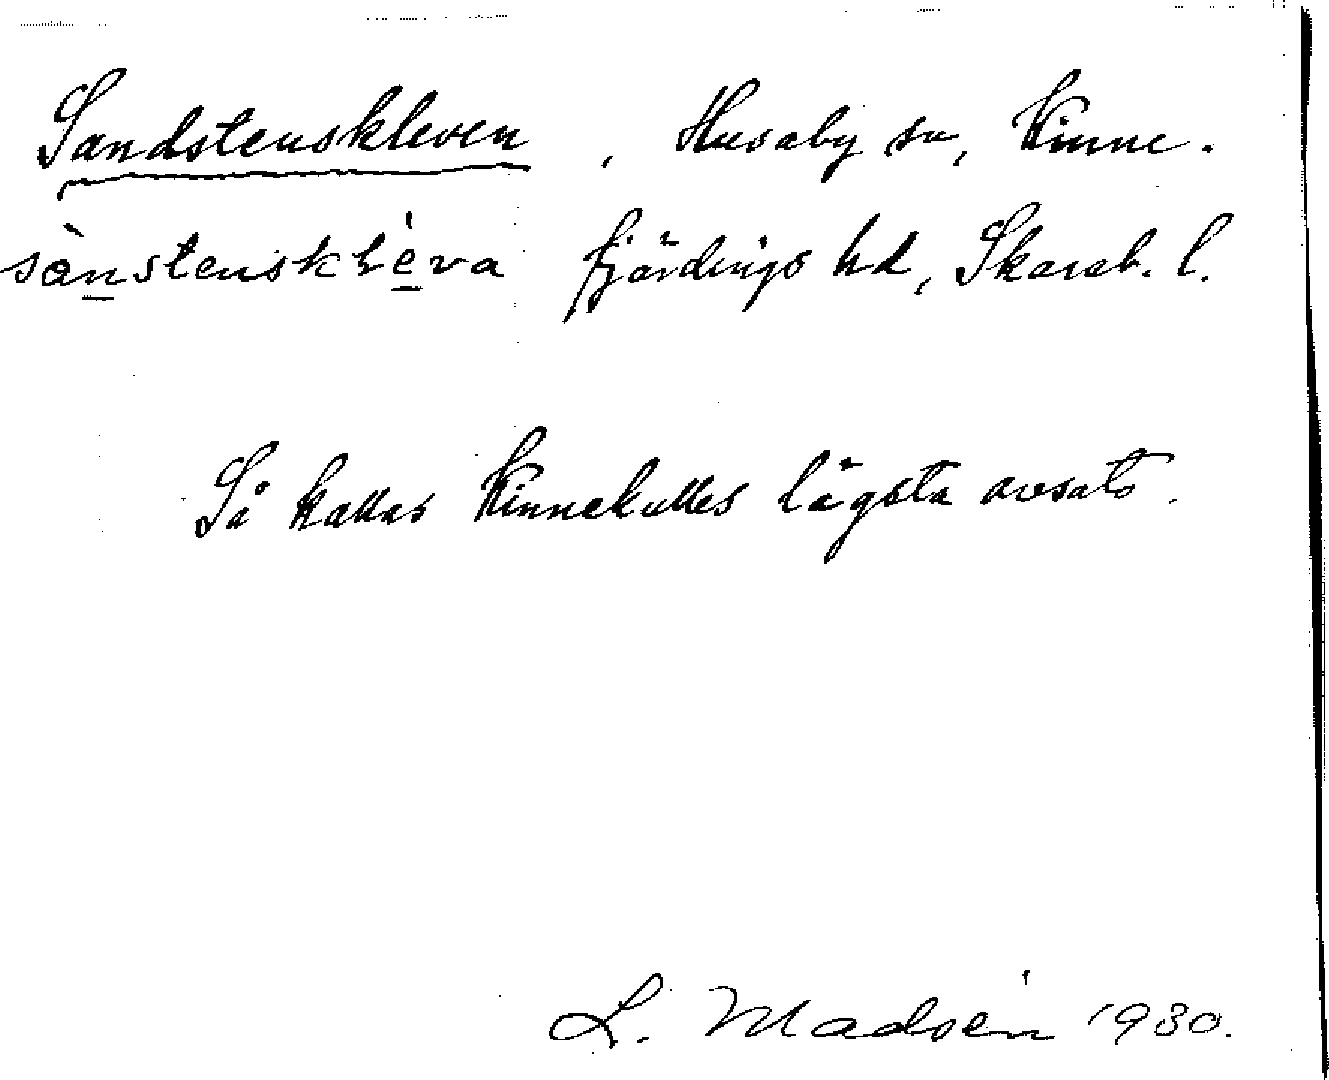 Sandstenskleven, Husaby sn, Kinne-
sànstensklèva fjärdings hd, Skarab. l.
Så kallas Kinnekulles lägsta avsats.
L. Madsén 1930.